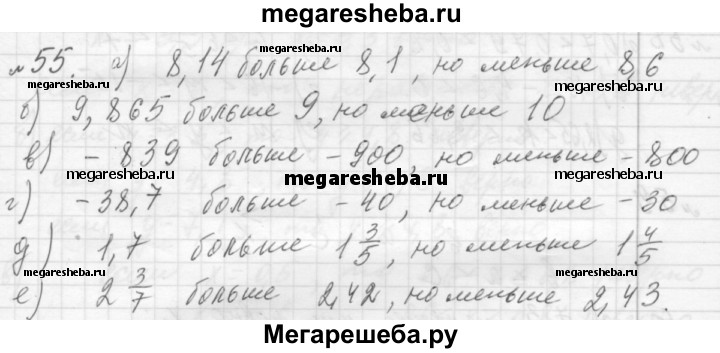 megaresheba.ru
№55. а) 8,14 больше 8,1, но меньше 8,6
б) 9,865 больше 9, но меньше 10
megaresheba.ru
в) -839 больше -900, но меньше -800
megaresheba.ru
г) -38,7 больше -40, но меньше -30
д) 1,7 больше 1 3/5, но меньше 1 4/5
megaresheba.ru
е) 2 3/7 больше 2,42, но меньше 2,43.
megaresheba.ru
Мегарешеба.ру